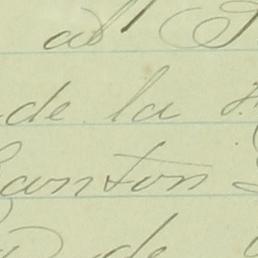 al
de la
Canton
de